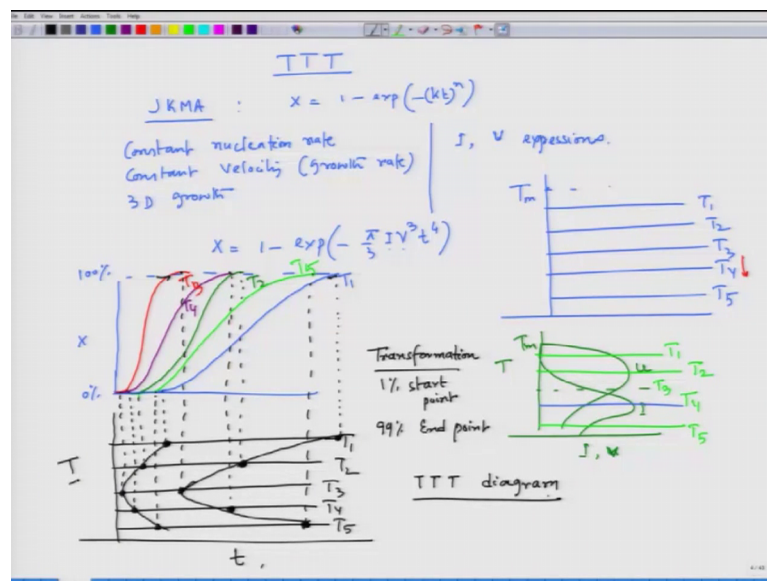 File Edit View Insert Actions Tools Help
TTT
JKMA : X = 1 - exp(-(kt)^n)
Constant nucleation rate
Constant velocity (Growth rate)
3D growth
I, V expessions.
Tm
T1
T2
T3
T4
T5
X = 1 - exp(- π/3 I V^3 t^4)
100%
X
0%
T3
T4
T2
T5
T1
Transformation
1% start
point
99% End point
Tm
T
T1
T2
T3
T4
T5
u
I
I, V
T
T1
T2
T3
T4
T5
t,
TTT diagram